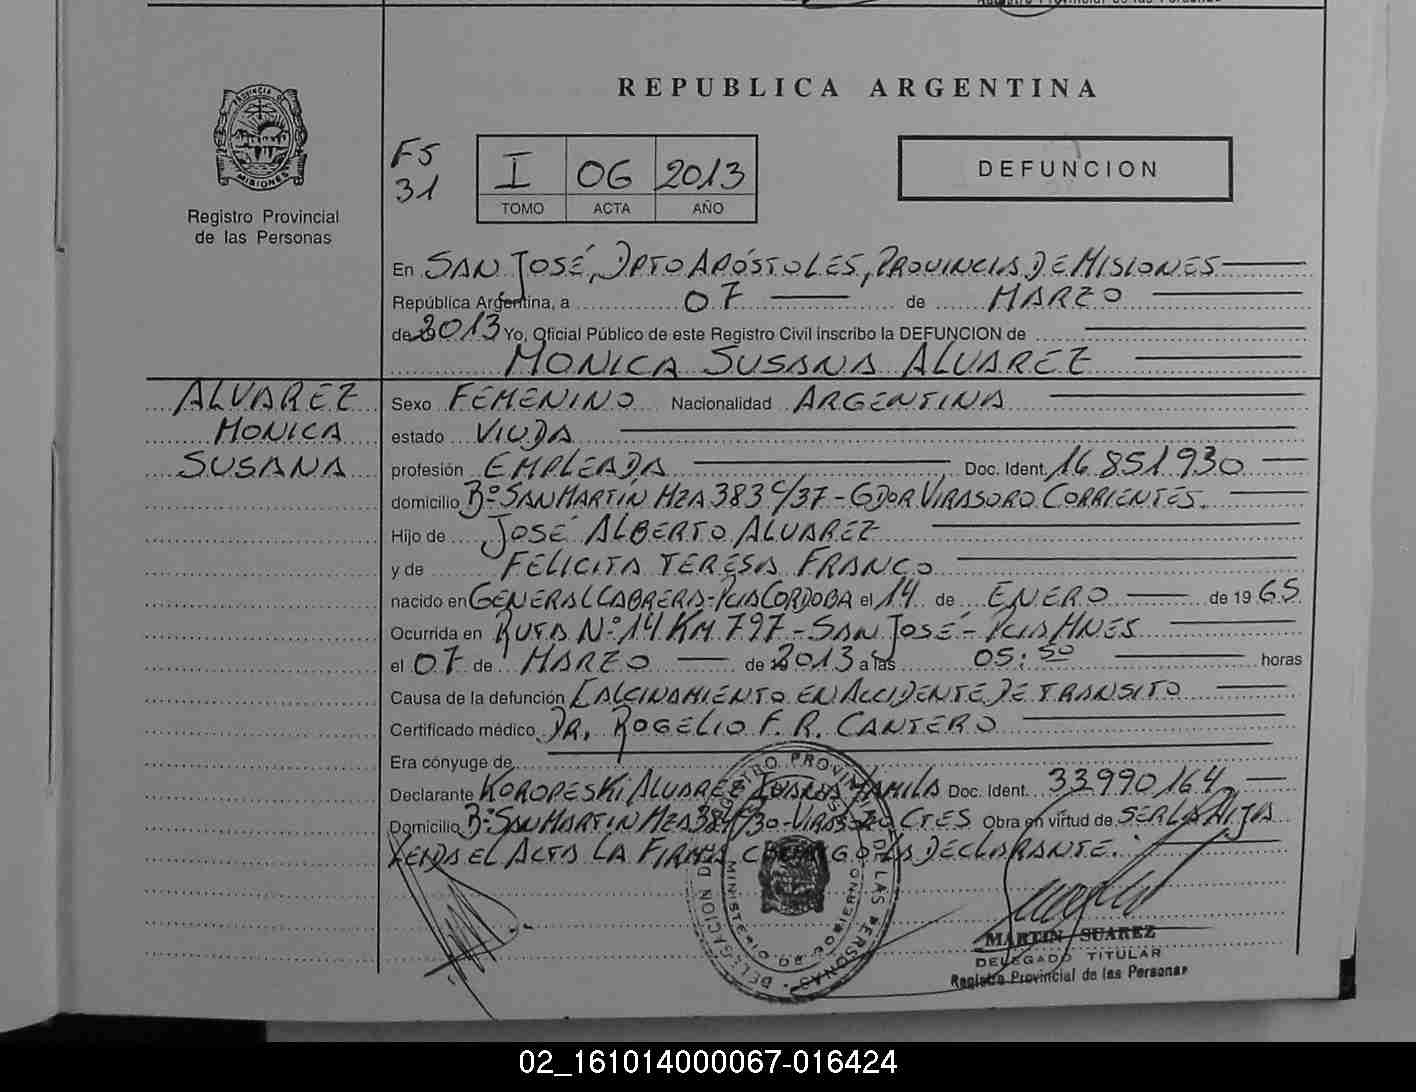 REPUBLICA ARGENTINA
PROVINCIA DE
MISIONES
Registro Provincial
de las Personas
FS
31
I 06 2013
TOMO ACTA AÑO
DEFUNCION
En SAN JOSÉ, DPTO APÓSTOLES, PROVINCIA DE MISIONES
República Argentina, a 07 de MARZO
de 2013 Yo, Oficial Público de este Registro Civil inscribo la DEFUNCION de
MONICA SUSANA ALVAREZ
ALVAREZ
MONICA
SUSANA
Sexo FEMENINO Nacionalidad ARGENTINA
estado VIUDA
profesión EMPLEADA Doc. Ident. 16.851.930
domicilio Bº SAN MARTIN MZA 383 C/37 - GDOR VIRASORO CORRIENTES.
Hijo de JOSÉ ALBERTO ALVAREZ
y de FELICITA TERESA FRANCO
nacido en GENERAL CABRERA - PCIA CORDOBA el 14 de ENERO de 1965
Ocurrida en RUTA Nº 14 KM 797 - SAN JOSÉ - PCIA MNES
el 07 de MARZO de 2013 a las 05:50 horas
Causa de la defunción CALCINAMIENTO EN ACCIDENTE DE TRANSITO
Certificado médico DR. ROGELIO F. R. CANTERO
Era cónyuge de
Declarante KOROPESKI ALVAREZ YAMILA Doc. Ident. 33.990.164
Domicilio Bº SAN MARTIN MZA - VIRASORO CTES Obra en virtud de SER LA HIJA
LEIDA EL ACTA LA FIRMA CONMIGO LA DECLARANTE.
DELEGACION DE REGISTRO PROVINCIAL DE LAS PERSONAS
MINISTERIO DE GOBIERNO
MARTIN SUAREZ
DELEGADO TITULAR
Registro Provincial de las Personas
02_161014000067-016424